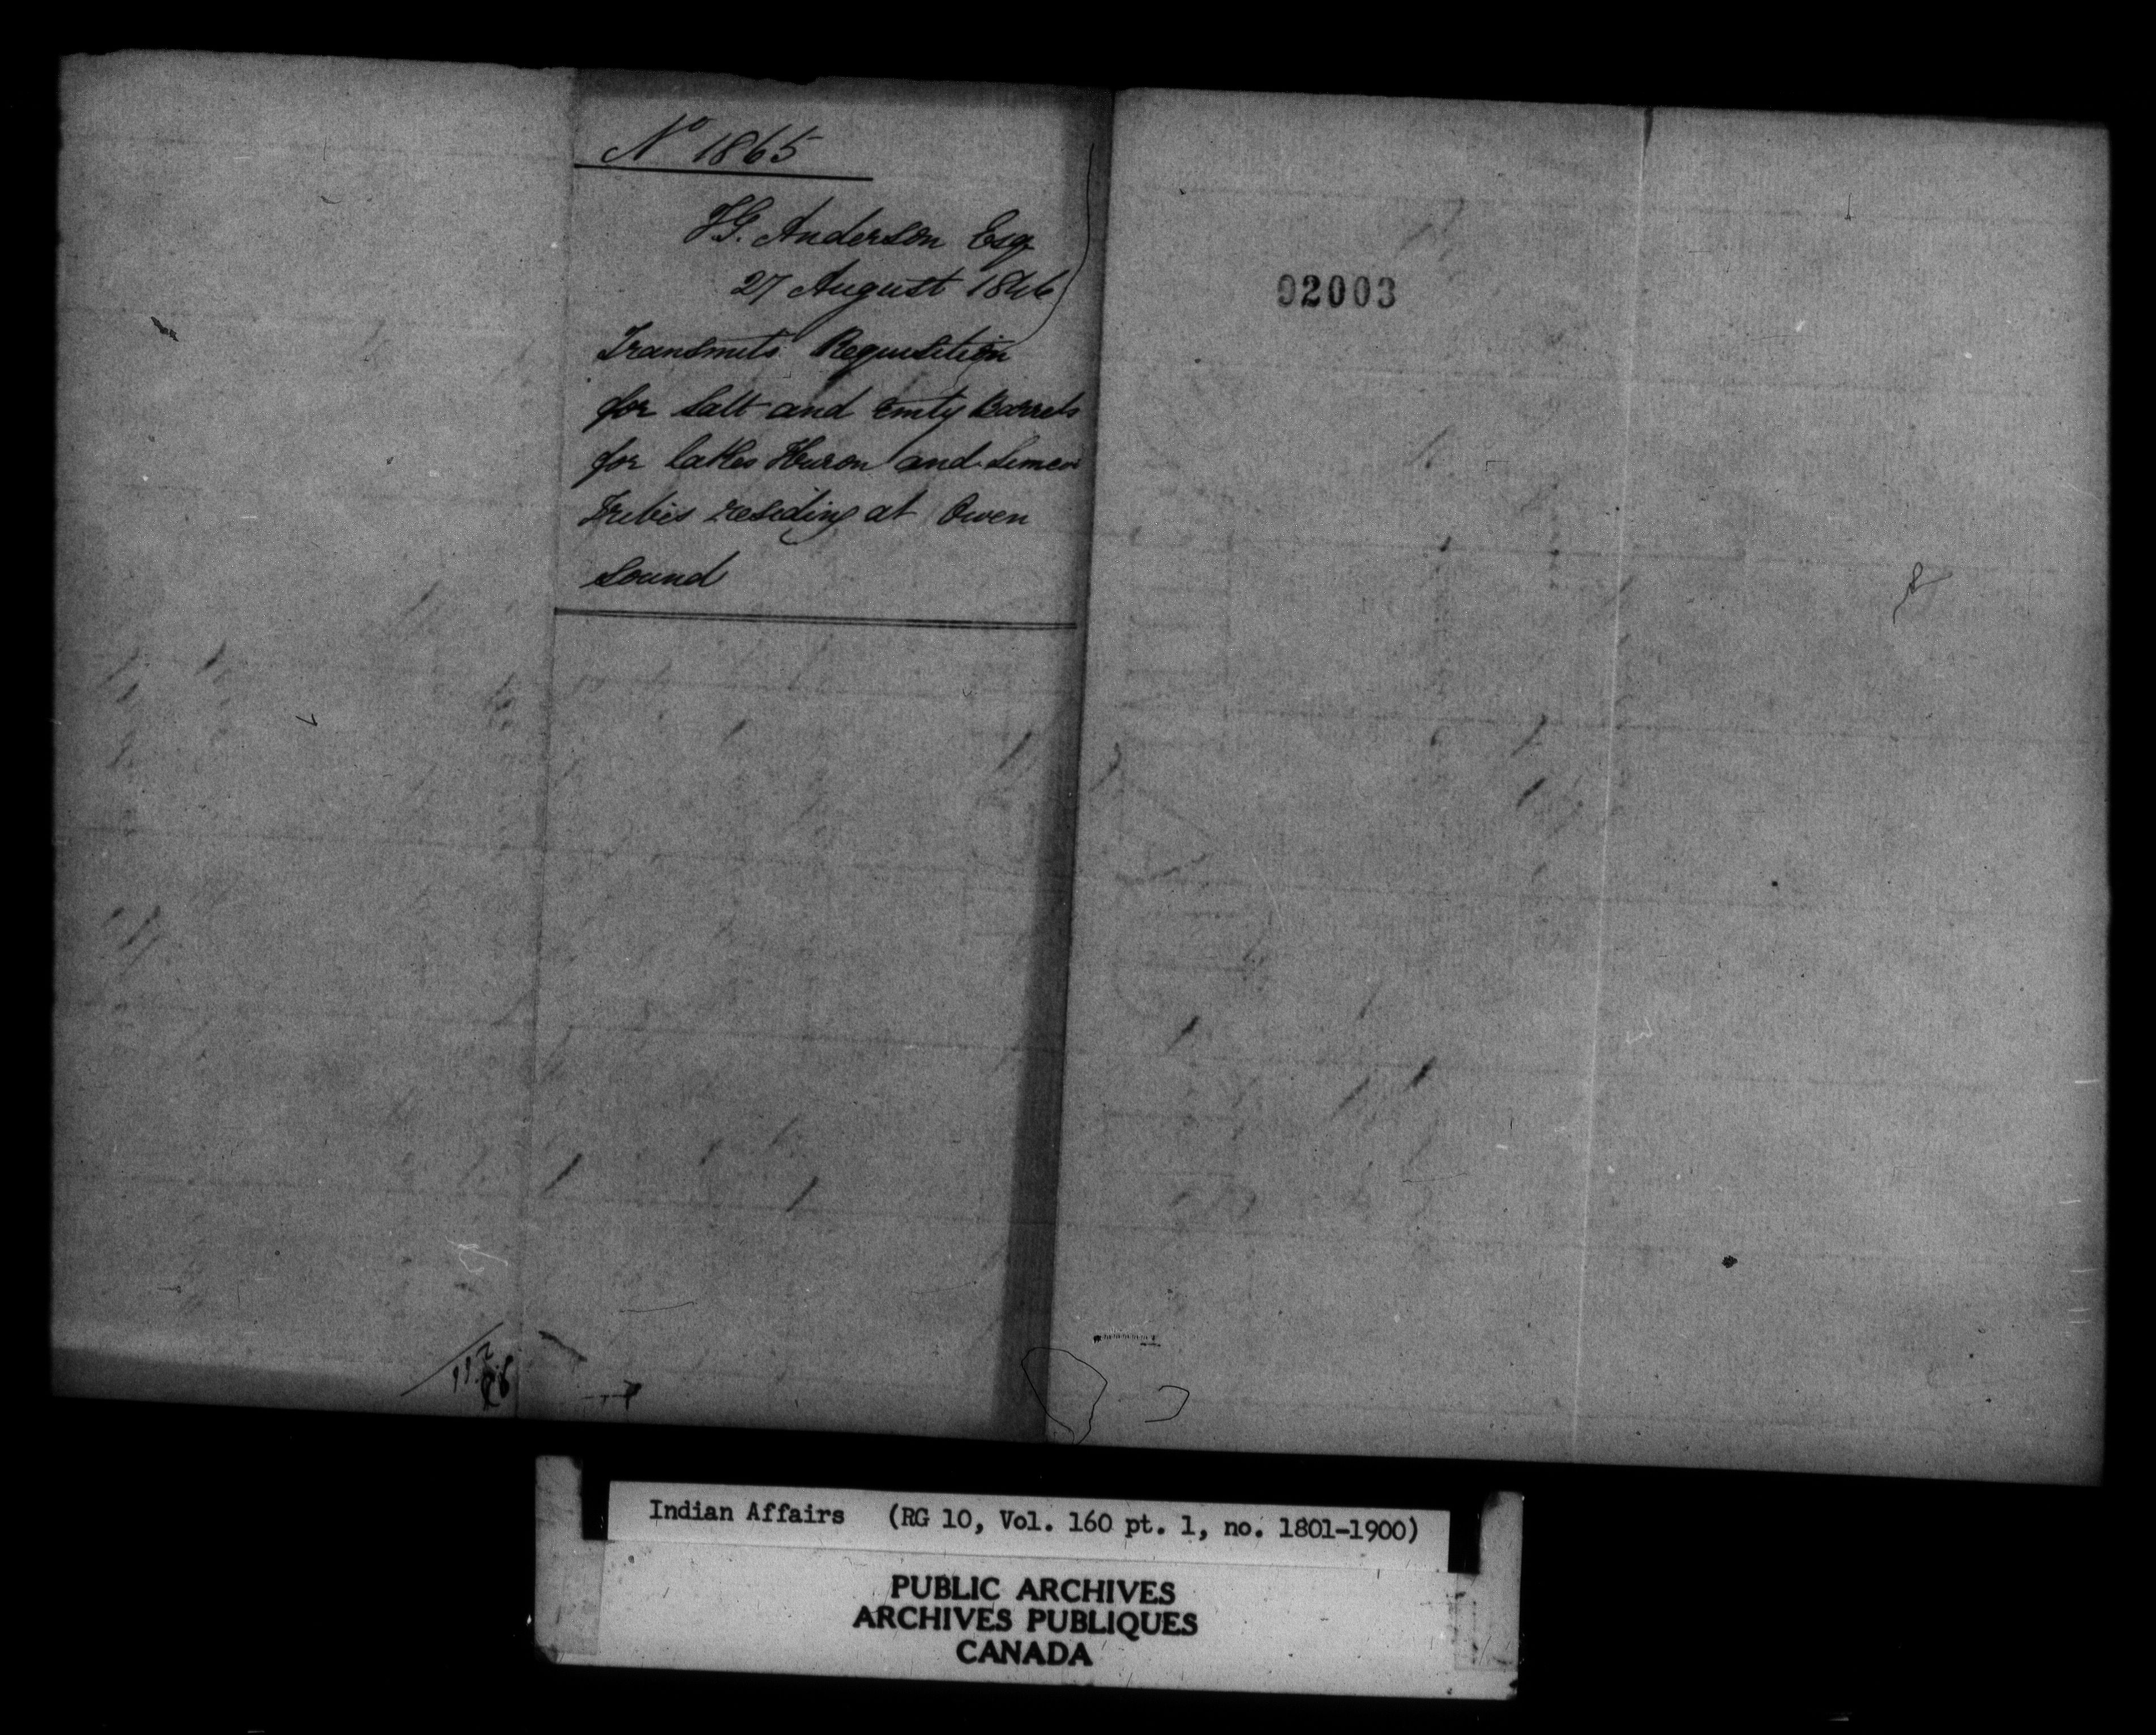 No 1865
T.G. Anderson Esq
27 August 1846
Transmits Requisition
for Salt and Emty Barrels
for Lakes Huron and Simcoe
Tribes residing at Owen
Sound
92003
Indian Affairs (RG 10, Vol. 160 pt. 1, no. 1801-1900)
PUBLIC ARCHIVES
ARCHIVES PUBLIQUES
CANADA